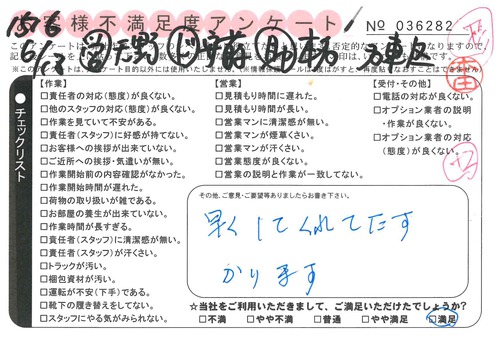 お客様不満足度アンケート
No 036282
チェックリスト
【作業】
□責任者の対応(態度)が良くない。
□他のスタッフの対応(態度)が良くない。
□作業を見ていて不安がある。
□責任者(スタッフ)に好感が持てない。
□お客様への挨拶が出来ていない。
□ご近所への挨拶・気遣いが無い。
□作業開始前の内容確認がなかった。
□作業開始時間が遅れた。
□荷物の取り扱いが雑である。
□お部屋の養生が出来ていない。
□作業時間が長すぎる。
□責任者(スタッフ)に清潔感が無い。
□責任者(スタッフ)が汗くさい。
□トラックが汚い。
□梱包資材が汚い。
□運転が不安(下手)である。
□靴下の履き替えをしてない。
□スタッフにやる気がみられない。
【営業】
□見積もり時間に遅れた。
□見積もり時間が長い。
□営業マンに清潔感が無い。
□営業マンが煙草くさい。
□営業マンが汗くさい。
□営業態度が良くない。
□営業の説明と作業が一致してない。
【受付・その他】
□電話の対応が良くない。
□オプション業者の説明
・作業が良くない。
□オプション業者の対応
(態度)が良くない。
その他、ご意見・ご要望等ありましたらお書き下さい。
早くしてくれてたす
かります
☆当社をご利用いただきまして、ご満足いただけたでしょうか?
□不満 □やや不満 □普通 □やや満足 □満足